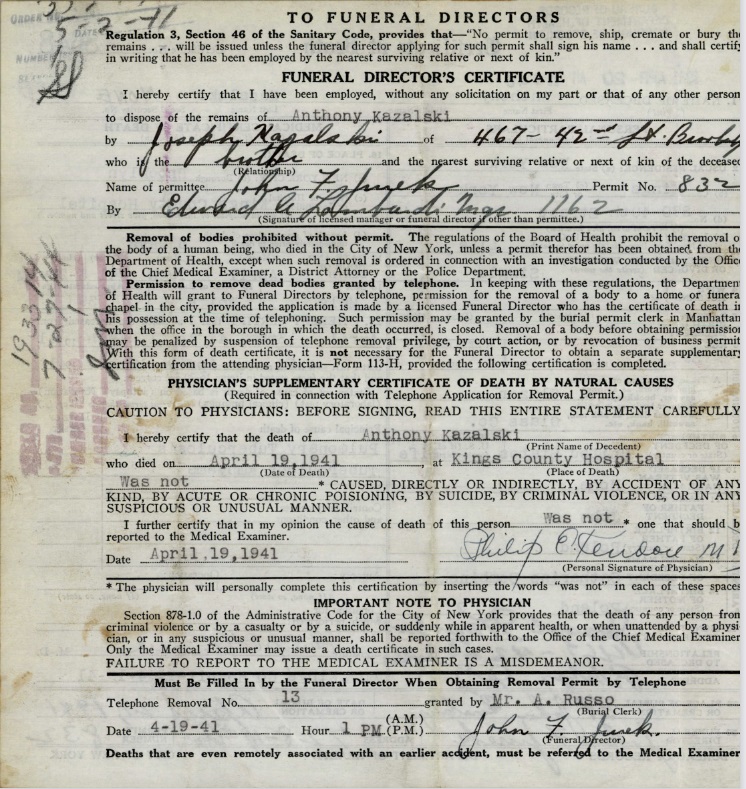 5-2-41
ORDER NO.
DATE
NUMBER
TO FUNERAL DIRECTORS
Regulation 3, Section 46 of the Sanitary Code, provides that—"No permit to remove, ship, cremate or bury the
remains . . . will be issued unless the funeral director applying for such permit shall sign his name . . . and shall certify
in writing that he has been employed by the nearest surviving relative or next of kin."
FUNERAL DIRECTOR'S CERTIFICATE
I hereby certify that I have been employed, without any solicitation on my part or that of any other person
to dispose of the remains of Anthony Kazalski
by Joseph Kazalski of 467-42nd St. Brooklyn
who is the brother and the nearest surviving relative or next of kin of the deceased
(Relationship)
Name of permittee John F. Jurek Permit No. 832
By Edward A Lombardi Mgr. 1162
(Signature of licensed manager or funeral director if other than permittee.)
Removal of bodies prohibited without permit. The regulations of the Board of Health prohibit the removal o
the body of a human being, who died in the City of New York, unless a permit therefor has been obtained from the
Department of Health, except when such removal is ordered in connection with an investigation conducted by the Office
of the Chief Medical Examiner, a District Attorney or the Police Department.
Permission to remove dead bodies granted by telephone. In keeping with these regulations, the Departmen
of Health will grant to Funeral Directors by telephone, permission for the removal of a body to a home or funera
chapel in the city, provided the application is made by a licensed Funeral Director who has the certificate of death in
his possession at the time of telephoning. Such permission may be granted by the burial permit clerk in Manhattan
when the office in the borough in which the death occurred, is closed. Removal of a body before obtaining permission
may be penalized by suspension of telephone removal privilege, by court action, or by revocation of business permit
With this form of death certificate, it is not necessary for the Funeral Director to obtain a separate supplementary
certification from the attending physician—Form 113-H, provided the following certification is completed.
193314
7-27-44
PHYSICIAN'S SUPPLEMENTARY CERTIFICATE OF DEATH BY NATURAL CAUSES
(Required in connection with Telephone Application for Removal Permit.)
CAUTION TO PHYSICIANS: BEFORE SIGNING, READ THIS ENTIRE STATEMENT CAREFULLY
I hereby certify that the death of Anthony Kazalski
(Print Name of Decedent)
who died on April 19,1941, at Kings County Hospital
(Date of Death) (Place of Death)
Was not * CAUSED, DIRECTLY OR INDIRECTLY, BY ACCIDENT OF ANY
KIND, BY ACUTE OR CHRONIC POISIONING, BY SUICIDE, BY CRIMINAL VIOLENCE, OR IN ANY
SUSPICIOUS OR UNUSUAL MANNER.
I further certify that in my opinion the cause of death of this person Was not * one that should b
reported to the Medical Examiner.
Date April 19,1941 Philip E. M D
(Personal Signature of Physician)
* The physician will personally complete this certification by inserting the words "was not" in each of these spaces
IMPORTANT NOTE TO PHYSICIAN
Section 878-1.0 of the Administrative Code for the City of New York provides that the death of any person from
criminal violence or by a casualty or by a suicide, or suddenly while in apparent health, or when unattended by a physi
cian, or in any suspicious or unusual manner, shall be reported forthwith to the Office of the Chief Medical Examiner
Only the Medical Examiner may issue a death certificate in such cases.
FAILURE TO REPORT TO THE MEDICAL EXAMINER IS A MISDEMEANOR.
Must Be Filled In by the Funeral Director When Obtaining Removal Permit by Telephone
Telephone Removal No. 13 granted by Mr. A. Russo
(Burial Clerk)
Date 4-19-41 Hour 1 PM (A.M.) (P.M.) John F. Jurek.
(Funeral Director)
Deaths that are even remotely associated with an earlier accident, must be referred to the Medical Examiner